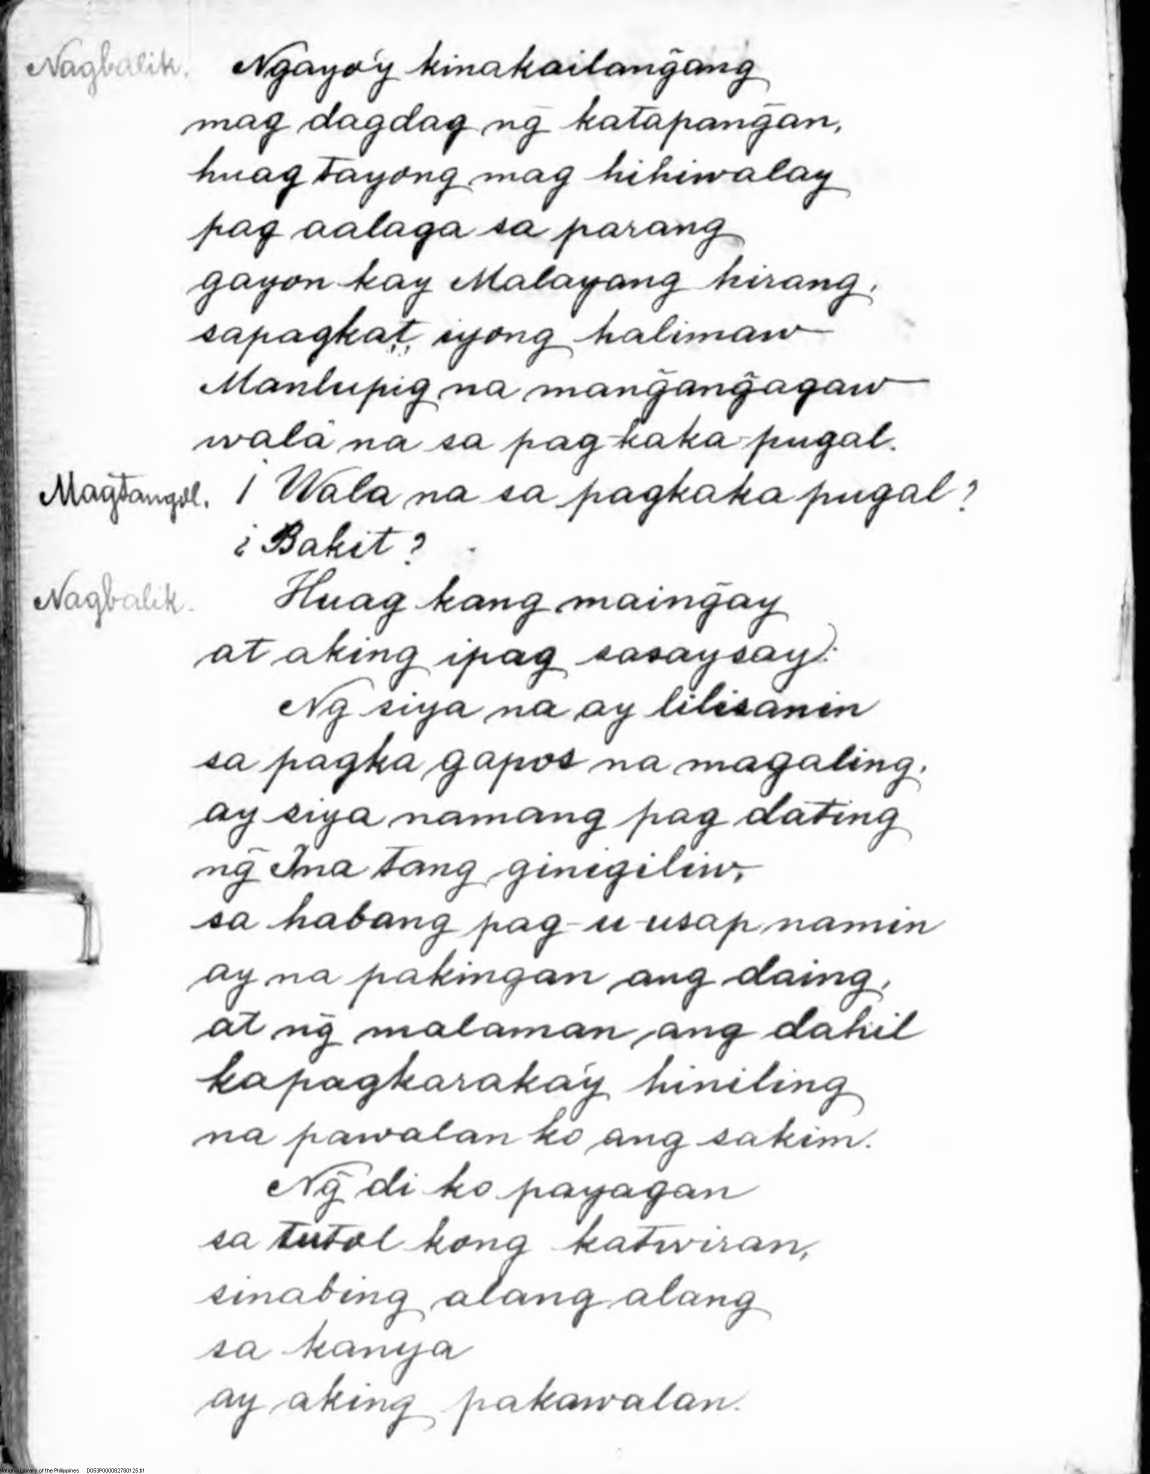 Nagbalik. Ngayo'y kinakailang̃ang
mag dagdag ng̃ katapang̃an,
huag tayong mag hihiwalay
pag aalaga sa parang
gayon kay Malayang hirang,
sapagkat, iyong halimaw
Manlupig na mang̃ang̃agaw
walâ na sa pag-kaka-pugal.
Magtangol. ¡ Wala na sa pagkaka pugal?
¿ Bakit?
Nagbalik. Huag kang maing̃ay
at aking ipag sasaysay):
Ng siya na ay lilisanin
sa pagka gapos na magaling,
ay siya namang pag dating
ng̃ Ina tang ginigiliw,
sa habang pag-u-usap namin
ay na pakingan ang daing,
at ng̃ malaman ang dahil
kapagkaraka'y hiniling
na pawalan ko ang sakim.
Ng̃ di ko payagan
sa tutol kong katwiran,
sinabing alang alang
sa kanya
ay aking pakawalan.
Library of the Philippines D053P000082780125.tif